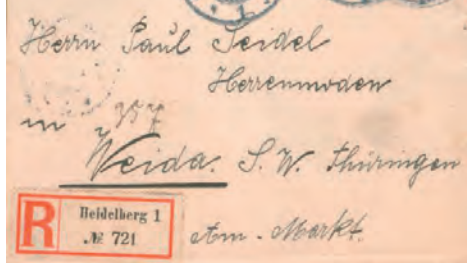 Herrn Paul Seidel
Herrenmoden
in
Weida. S. W. Thüringen
R Heidelberg 1
№ 721
Am. Markt.